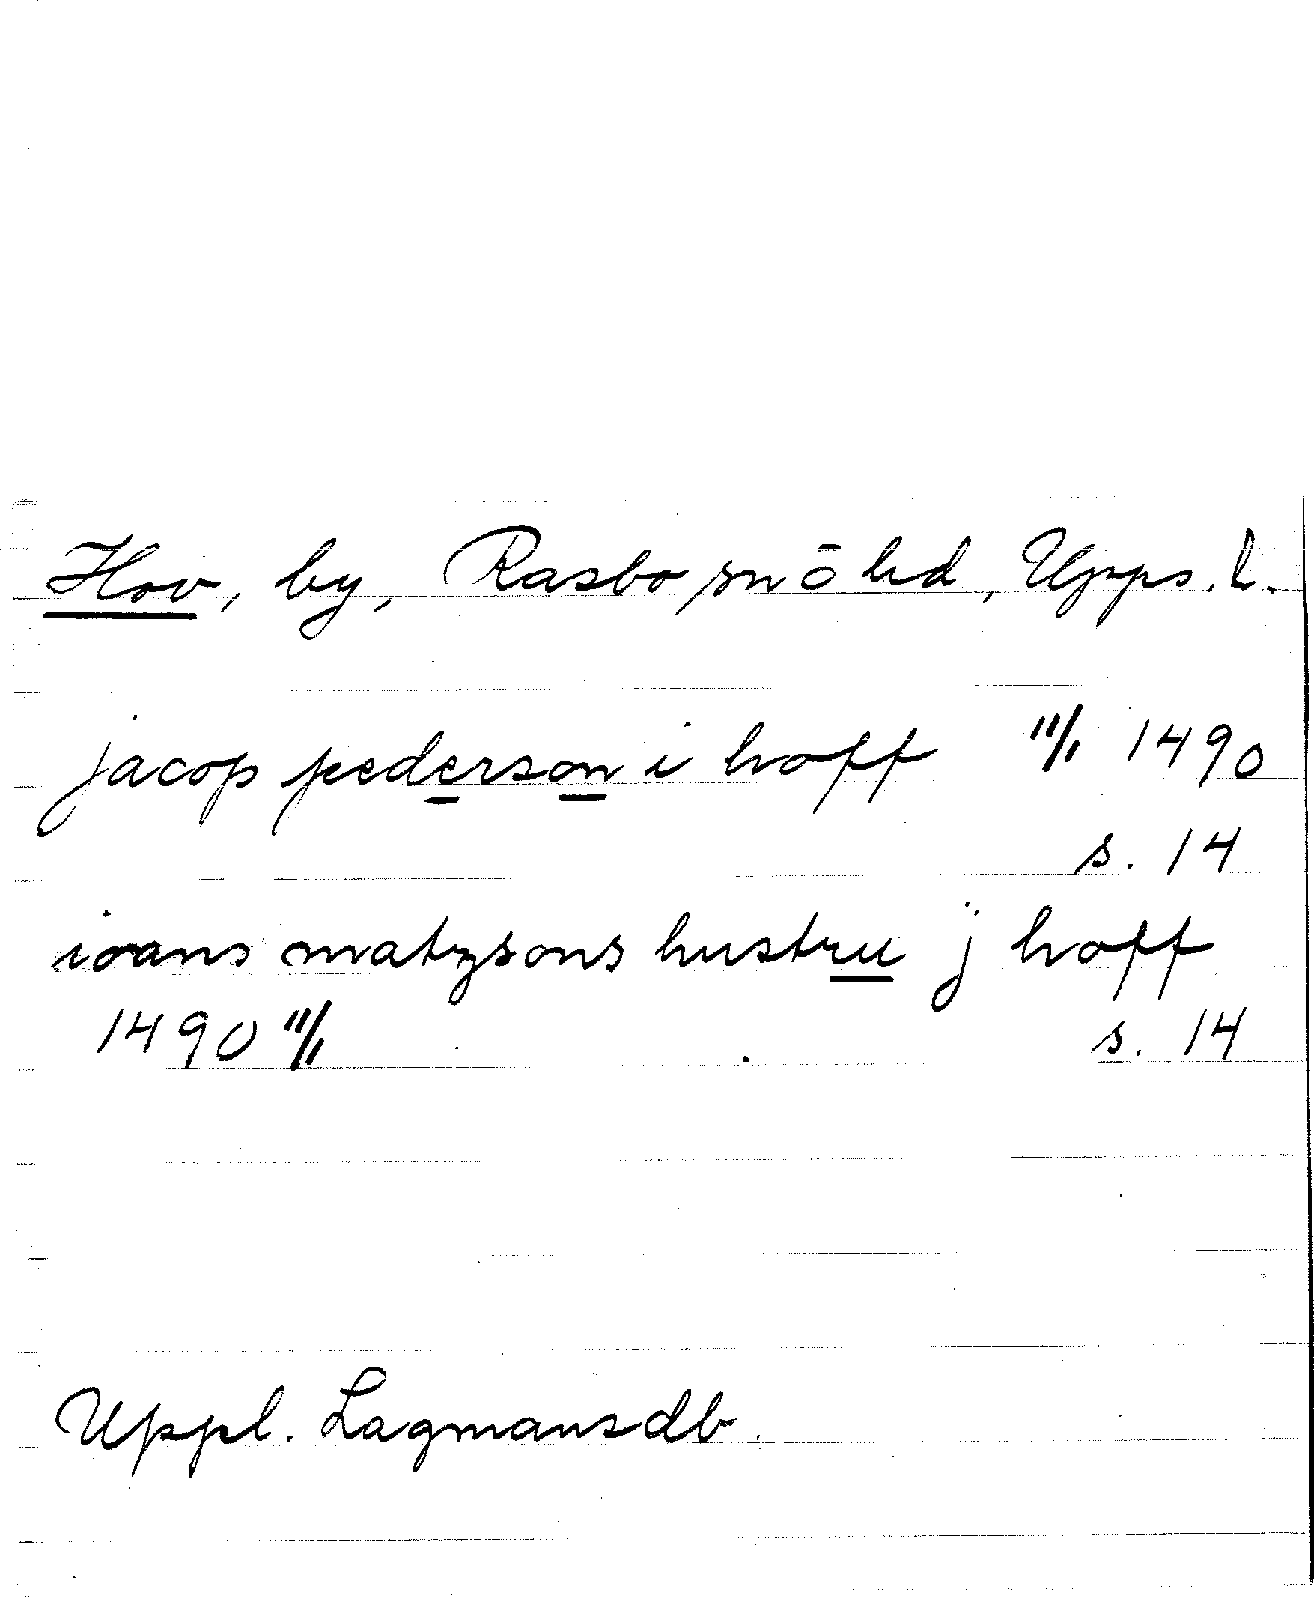 Hov, by, Rasbo sn ō hd, Upps. l.
jacop pederson i hoff 11/1 1490
s. 14
ioans matzsons hustru j hoff
1490 11/1 s. 14
Uppl. Lagmansdb.